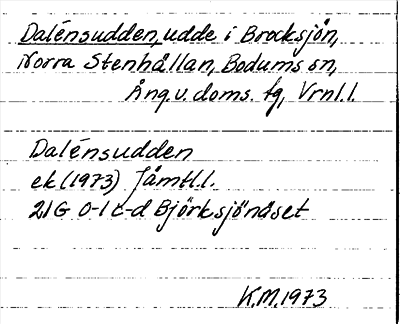 Dalénsudden, udde i Brocksjön,
Norra Stenhållan, Bodums sn,
Ång.v.doms. tg, Vrnl.l.
Dalénsudden
ek (1973) Jämtl.l.
21G 0-1 c-d Björksjönäset
K.M.1973